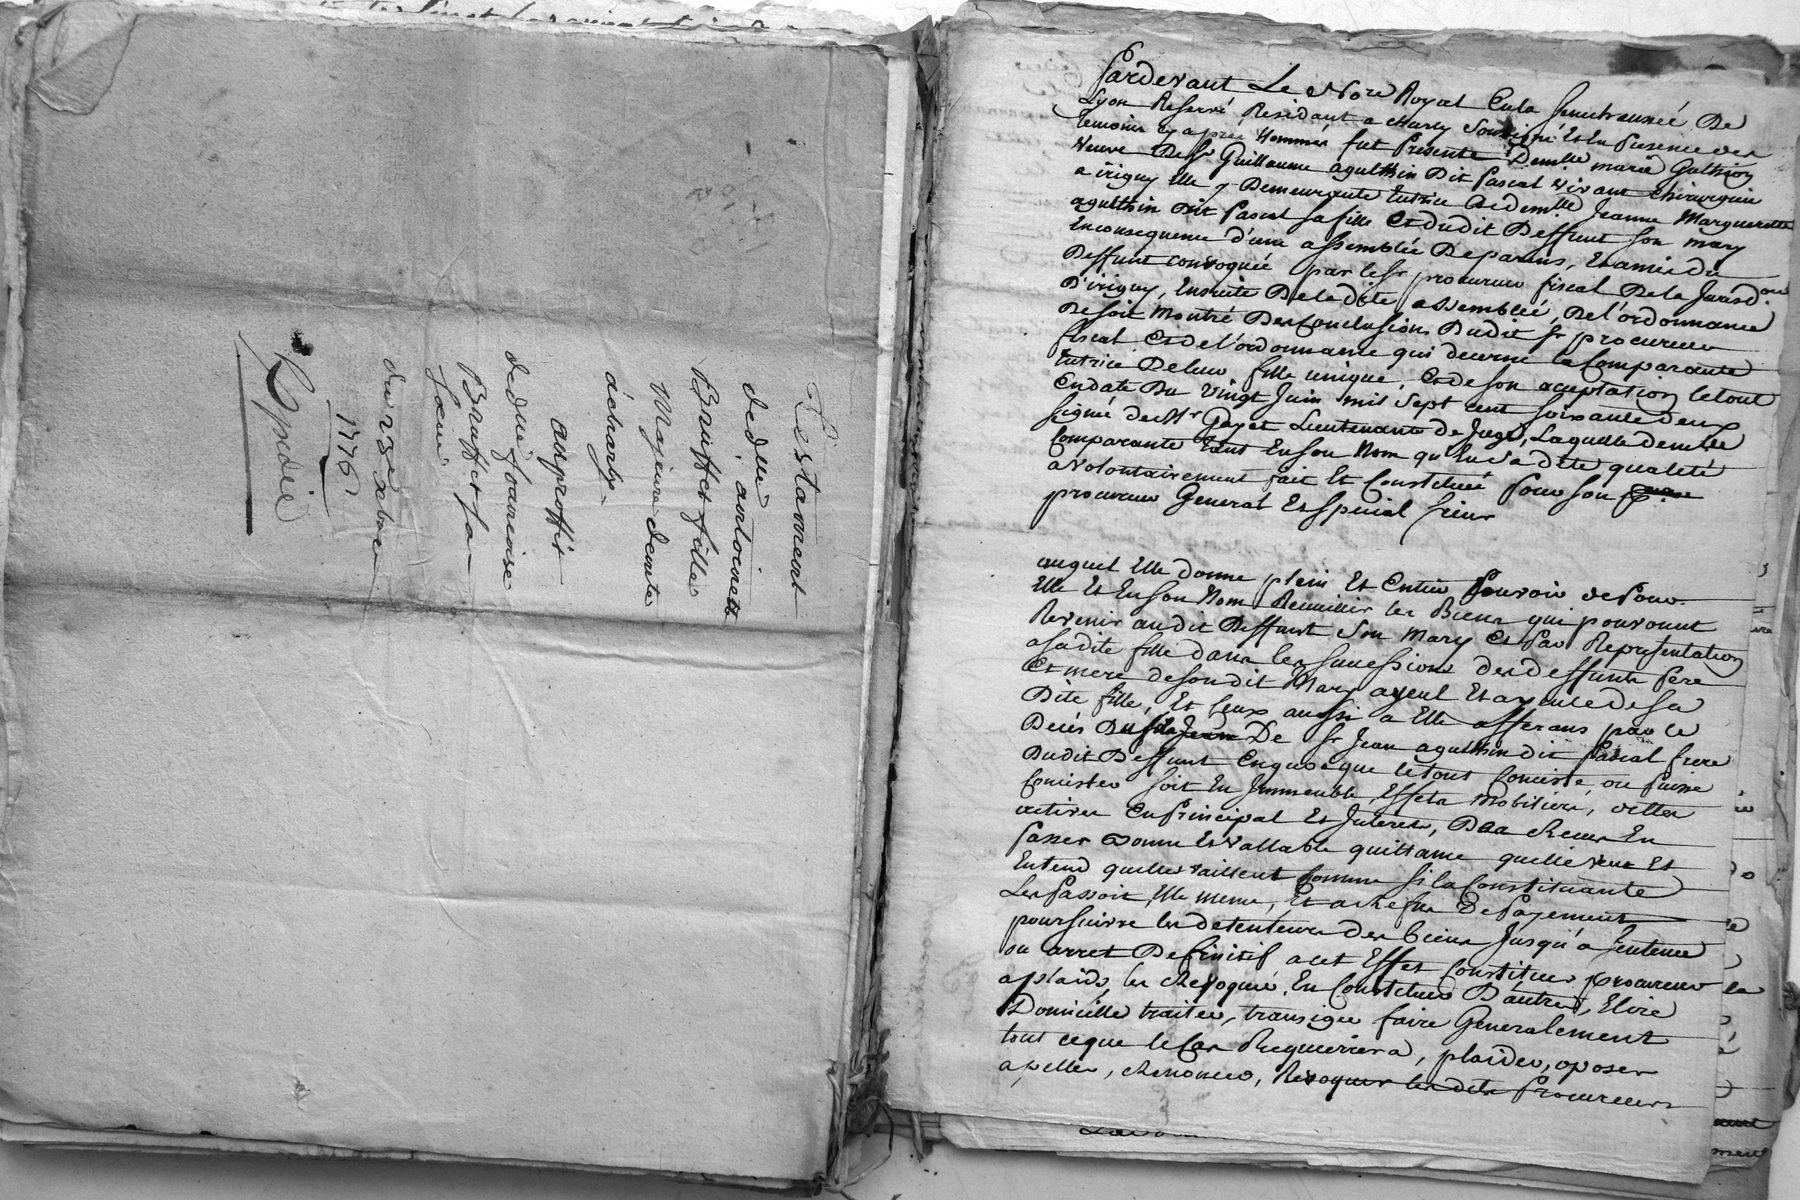 Testament
de dlle antoinette
Bruffet fille
Majeure demte
à charly
au proffit
de dlle francoise
Bruffet sa
sœur
du 23e xbre
1776
Expdiée
Pardevant Le Nore Royal En la Senechaussée De
Lyon Reservé Residant a charly Soussigné Et En Presence des
temoins cy apres Nommés fut Presente Demlle marie Gathion
Veuve De Sr Guillaume agulthin Dit Pascal vivant chirurgien
a irigny Elle y Demeurante tutrice de demlle Jeanne Margueritte
agulthin Dit Pascal sa fille Et dudit Deffunt son mary
En consequence d'une assemblée De parens, Et amis du
Deffunt convoquée par le Sr procureur fiscal De la Jurisdon
D'irigny, Ensuite De la dite assemblée, De l'ordonnance
De soit Montré Des Conclusions Dudit Sr procureur
fiscal Et de l'ordonnance qui decerne la Comparante
tutrice De leur fille unique, Et de son aceptation le tout
En date Du vingt Juin mil Sept cent soixante deux
signée de Mr Gayet Lieutenant de Juge, Laquelle demlle
Comparante tant En son Nom qu'En sa dite qualité
a volontairement fait Et Constitué Pour son
procureur General Et special sieur
auquel Elle donne plein Et Entier Pouvoir de Pour
Elle Et En son Nom Recuillir les Biens qui pouvoient
Revenir audit Deffunt son Mary Et Par Representation
a sa dite fille dans les successions des deffunts Pere
Et mere de son dit Mary ayeul Et ayeule de sa
Dite fille, Et Ceux aussi a Elle afferans par le
Decés De Sr Jean agulthin dit Pascal frere
Dudit Deffunt En quoique le tout Consiste, ou Puisse
Consister soit En Immeuble, Effets Mobiliers, dettes
actives En Principal Et Interets, Des Reçus En
Passer Bonne Et vallable quittance quelle veut Et
Entend quelles vaillent Comme si la Constituante
Les Passoit Elle meme, Et a Refus De Payement
poursuivre les detenteurs des biens Jusqu'a Sentence
ou arret Definitif a cet Effet Constituer procureur
a plaids, les Revoquer, En Constituer D'autres, Elire
Domicille traiter, transiger faire Generalement
tout ce que le Cas Requierera, plaider, oposer
apeller, Renoncer, Revoquer les dits Procureurs